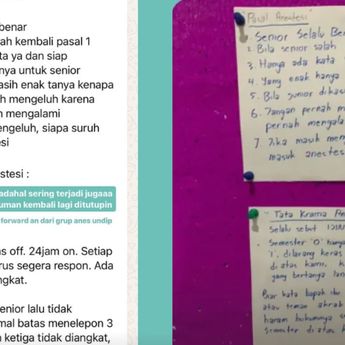 benar
ah kembali pasal 1
ta ya dan siap
nya untuk senior
asih enak tanya kenapa
h mengeluh karena
n mengalami
engeluh, siapa suruh
esi
stesi :
adahal sering terjadi jugaaa
uman kembali lagi ditutupin
forward an dari grup anes undip
s off. 24jam on. Setiap
rus segera respon. Ada
ngkat.
enior lalu tidak
mal batas menelepon 3
n ketiga tidak diangkat,
Pasal Anestesi
Senior Selalu Be
2. Bila senior salah
3. Hanya ada kata
4. Yang enak hanya
5. Bila junior dikas
6. Jangan pernah m
pernah mengala
7. Jika masih meng
masuk anestes
Tata Krama
Selalu sebut
Semester "0" hanya
"1". dilarang keras
di atas kami,
yang bertanya lan
atau teman akrab
haram hukumnya
Semester di atas